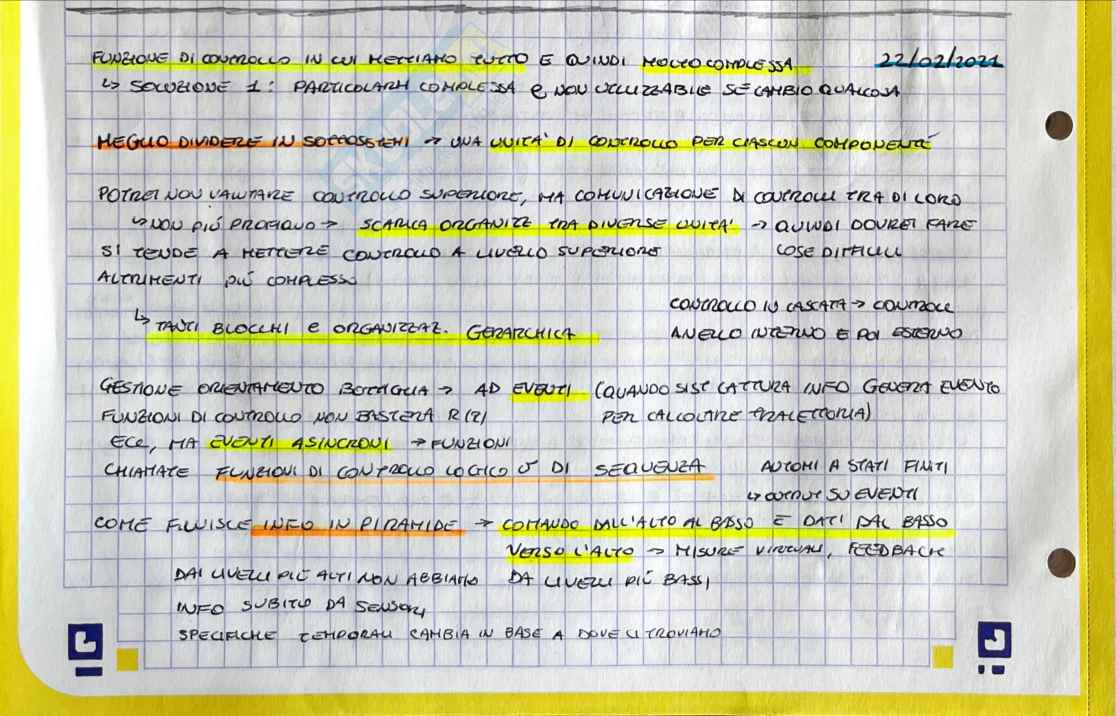 FUNZIONE DI CONTROLLO IN CUI METTIAMO TUTTO E QUINDI MOLTO COMPLESSA 22/02/2021
↳ SOLUZIONE 1: PARTICOLARM COMPLESSA e NON UTILIZZABILE SE CAMBIO QUALCOSA
MEGLIO DIVIDERE IN SOTTOSISTEMI → UNA UNITA' DI CONTROLLO PER CIASCUN COMPONENTE
POTREI NON CONTROLLO SUPERIORE, MA COMUNICAZIONE DI CONTROLLI TRA DI LORO
↳ NON PIÙ → SCARICA ORGANIZZ TRA DIVERSE UNITA' → QUINDI DOVREI FARE
SI TENDE A METTERE CONTROLLO A LIVELLO SUPERIORE COSE DIFFICILI
ALTRIMENTI PIÙ COMPLESSO
CONTROLLO IN CASCATA → CONTROLL
↳ TANTI BLOCCHI e ORGANIZZAZ. GERARCHICA ANELLO INTERNO E POI ESTERNO
GESTIONE ORIENTAMENTO BOTTIGLIA → AD EVENTI (QUANDO SIST CATTURA INFO GENERA EVENTO
FUNZIONI DI CONTROLLO NON BASTERÀ R(z) PER CALCOLARE TRAIETTORIA)
ECC, MA EVENTI ASINCRONI → FUNZIONI
CHIAMATE FUNZIONI DI CONTROLLO LOGICO O DI SEQUENZA AUTOMI A STATI FINITI
↳ OUTPUT SU EVENTI
COME FLUISCE INFO IN PIRAMIDE → COMANDO DALL'ALTO AL BASSO E DATI DAL BASSO
VERSO L'ALTO → MISURE VIRTUALI, FEEDBACK
DAI LIVELLI PIÙ ALTI NON ABBIAMO DA LIVELLI PIÙ BASSI
INFO SUBITO DA SENSORI
SPECIFICHE TEMPORALI CAMBIA IN BASE A DOVE CI TROVIAMO